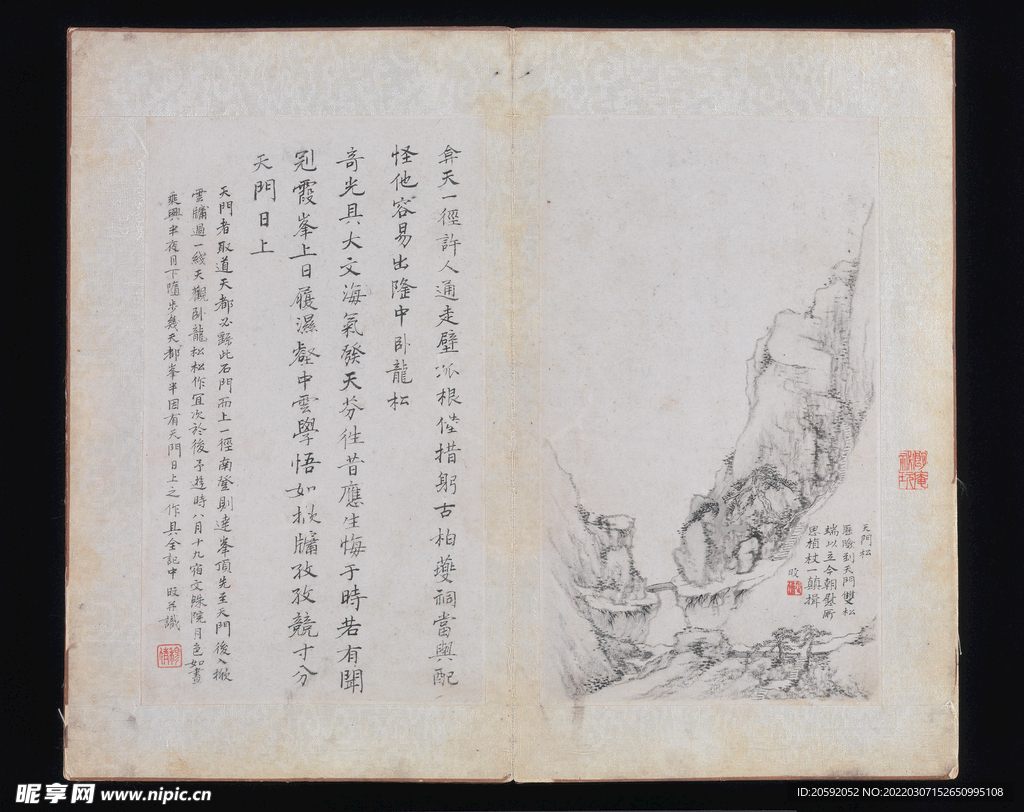 天門松
歷險到天門雙松
端以立今朝慰所
思植杖一顛揖
弇天一徑許人通走壁孤根倚措躬古柏夔祠當與配
怪他容易出隆中臥龍松
奇光具大文海氣發天芬往昔應生悔于時若有聞
冠霞峯上日履濕壑中雲學悟如掀牖孜孜競寸分
天門日上
天門者取道天都必繇此石門而上一徑南登則達峯頂先至天門後入掀
雲牖過一綫天觀臥龍松松作宜次於後予遊時八月十九宿文殊院月色如晝
乘興半夜月下隨步幾天都峯半因有天門日上之作具全記中 旼并識
昵享网 www.nipic.cn
ID:20592052 NO:20220307152650995108